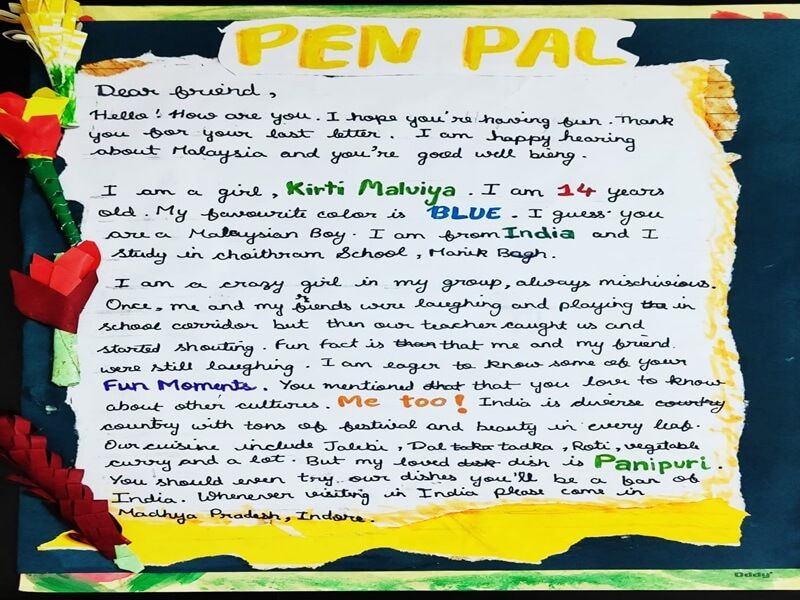 PEN PAL
Dear friend,
Hello! How are you. I hope you're having fun. Thank
you for your last letter. I am happy hearing
about Malaysia and you're good well bieng.
I am a girl, Kirti Malviya. I am 14 years
old. My favourite color is BLUE. I guess you
are a Malaysian Boy. I am from India and I
study in choithram School, Manik Bagh.
I am a crazy girl in my group, always mischivious.
Once, me and my friends were laughing and playing the in
school corridor but then our teacher caught us and
started shouting. Fun fact is than that me and my friend
were still laughing. I am eager to know some of your
Fun Moments. You mentioned that that you love to know
about other cultures. Me too! India is diverse country
country with tons of festival and beauty in every leaf.
Our cuisine include Jalebi, Dal taka tadka, Roti, vegetable
curry and a lot. But my loved disk dish is Panipuri.
You should even try our dishes you'll be a fan of
India. Whenever visiting in India Please come in
Madhya Pradesh, Indore.
Oddy